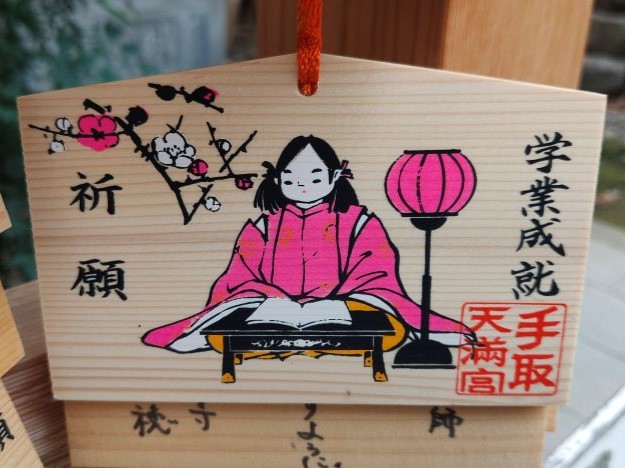 学業成就
祈願
手取
天満宮
師